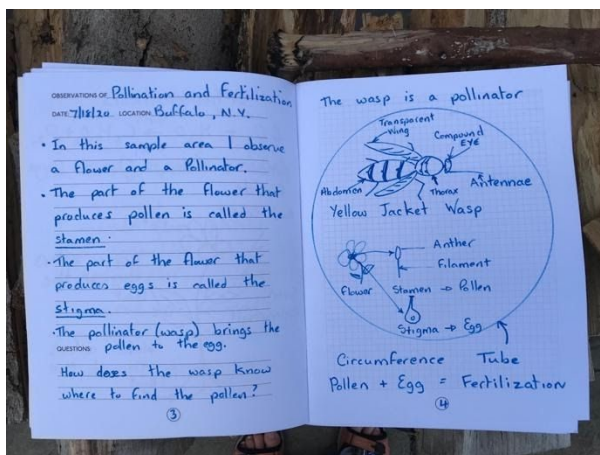 OBSERVATIONS OF Pollination and Fertilization
DATE 7/18/20 LOCATION Buffalo, N.Y.
• In this sample area I observe
a flower and a Pollinator.
• The part of the flower that
produces pollen is called the
stamen.
• The part of the flower that
produces eggs is called the
stigma.
• The pollinator (wasp) brings the
QUESTIONS pollen to the egg.
How does the wasp know
where to find the pollen?
3
The wasp is a pollinator
Transparent
wing
Compound
EYE
Abdomen
Thorax
Antennae
Yellow Jacket Wasp
Anther
Filament
flower
Stamen → Pollen
Stigma → Egg
Circumference Tube
Pollen + Egg = Fertilization
4